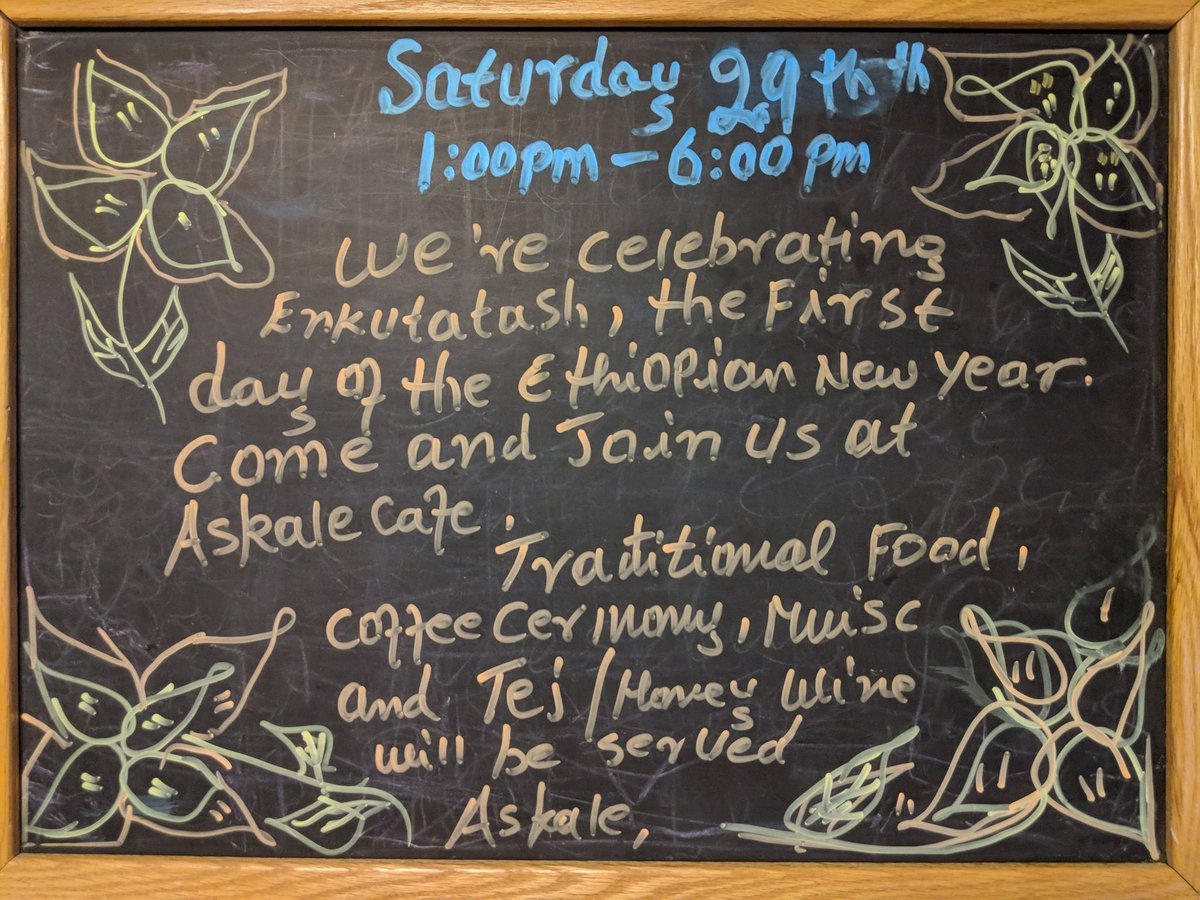 Saturday 29th th
1:00pm - 6:00pm
We're celebrating
Enkutatash, the First
day of the Ethiopian New Year.
Come and Join us at
Askale Cafe.
Traditional Food,
Coffee Cerimony, Muisc
and Tej/Honey Wine
will be served
Askale,